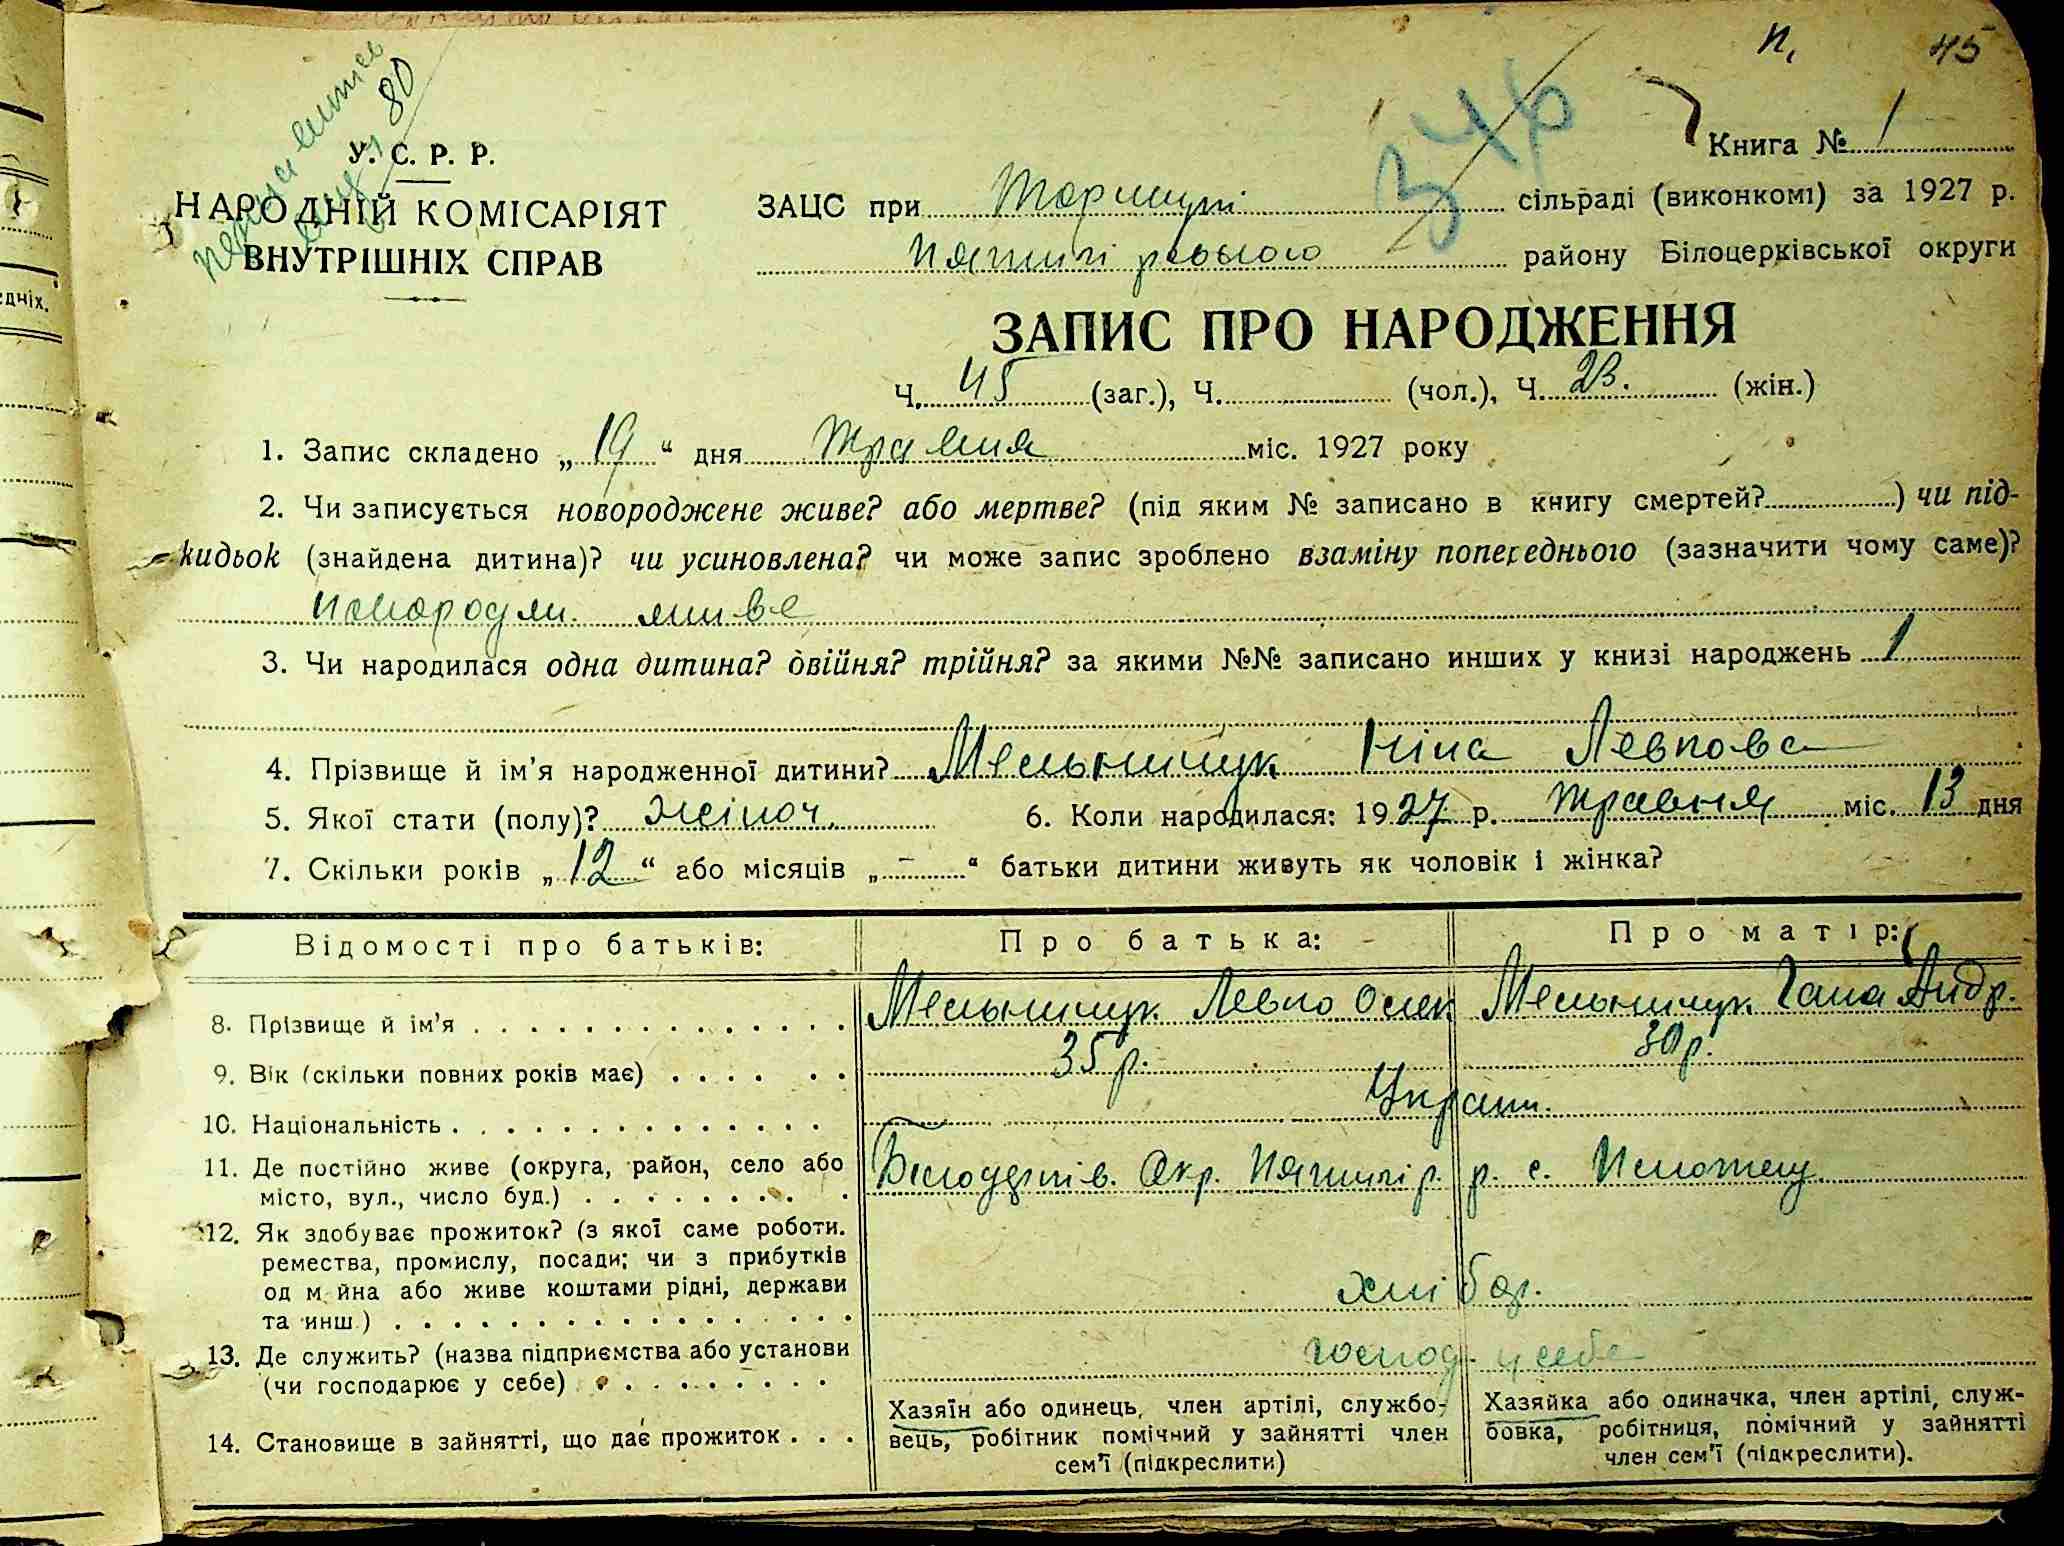 п. 45
80
346
У. С. Р. Р.
НАРОДНІЙ КОМІСАРІЯТ
ВНУТРІШНІХ СПРАВ
Книга № 1
ЗАЦС при сільраді (виконкомі) за 1927 р.
району Білоцерківської округи
ЗАПИС ПРО НАРОДЖЕННЯ
Ч. 45 (заг.), Ч. (чол.), Ч. 23. (жін.)
1. Запис складено „19“ дня травня міс. 1927 року
2. Чи записується новороджене живе? або мертве? (під яким № записано в книгу смертей? ) чи під-
кидьок (знайдена дитина)? чи усиновлена? чи може запис зроблено взаміну попереднього (зазначити чому саме)?
живе
3. Чи народилася одна дитина? двійня? трійня? за якими №№ записано инших у книзі народжень 1
4. Прізвище й ім'я народженної дитини? Мельничук Ніна Левкова
5. Якої стати (полу)? жіноч. 6. Коли народилася: 1927 р. травня міс. 13 дня
7. Скільки років „12“ або місяців „–“ батьки дитини живуть як чоловік і жінка?
Відомості про батьків: Про батька: Про матір:
8. Прізвище й ім'я Мельничук Левко Олек Мельничук Гана Андр.
9. Вік (скільки повних років має) 35 р. 30 р.
10. Національність Україн.
11. Де постійно живе (округа, район, село або
місто, вул., число буд.) Білоцерків. Окр. Пятигір. р. с.
12. Як здобуває прожиток? (з якої саме роботи.
ремества, промислу, посади; чи з прибутків
од м йна або живе коштами рідні, держави
та инш.) хлібор.
13. Де служить? (назва підприємства або установи
(чи господарює у себе) господ. у себе
14. Становище в зайнятті, що дає прожиток
Хазяїн або одинець, член артілі, службо-
вець, робітник помічний у зайнятті член
сем'ї (підкреслити)
Хазяйка або одиначка, член артілі, служ-
бовка, робітниця, помічний у зайнятті
член сем'ї (підкреслити).
едніх.